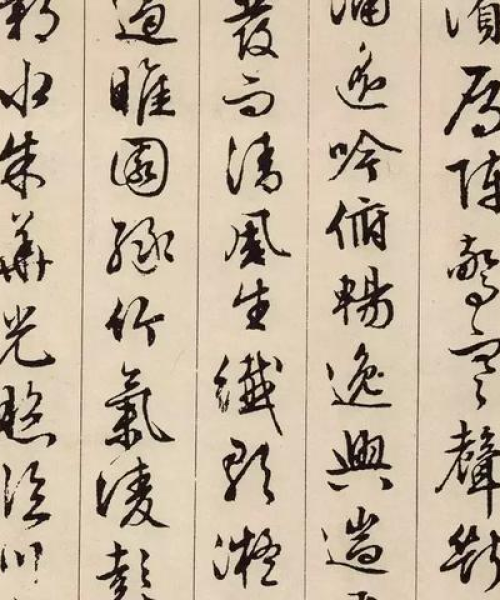 濱雁陣驚寒聲斷
浦遙吟俯暢逸興遄
發而清風生纖歌凝
遏睢園綠竹氣淩彭
鄴水朱華光照臨川